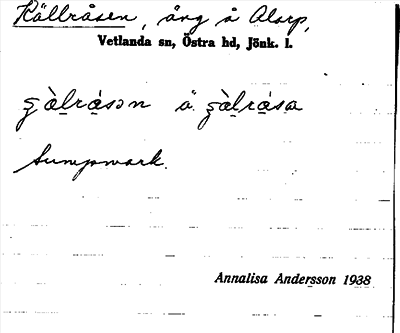 Källråsen, äng å Alarp,
Vetlanda sn, Östra hd, Jönk. l.
ʂὰlrå̀sən ä. ʂὰlrå̀sa
Sumpmark.
Annalisa Andersson 1938